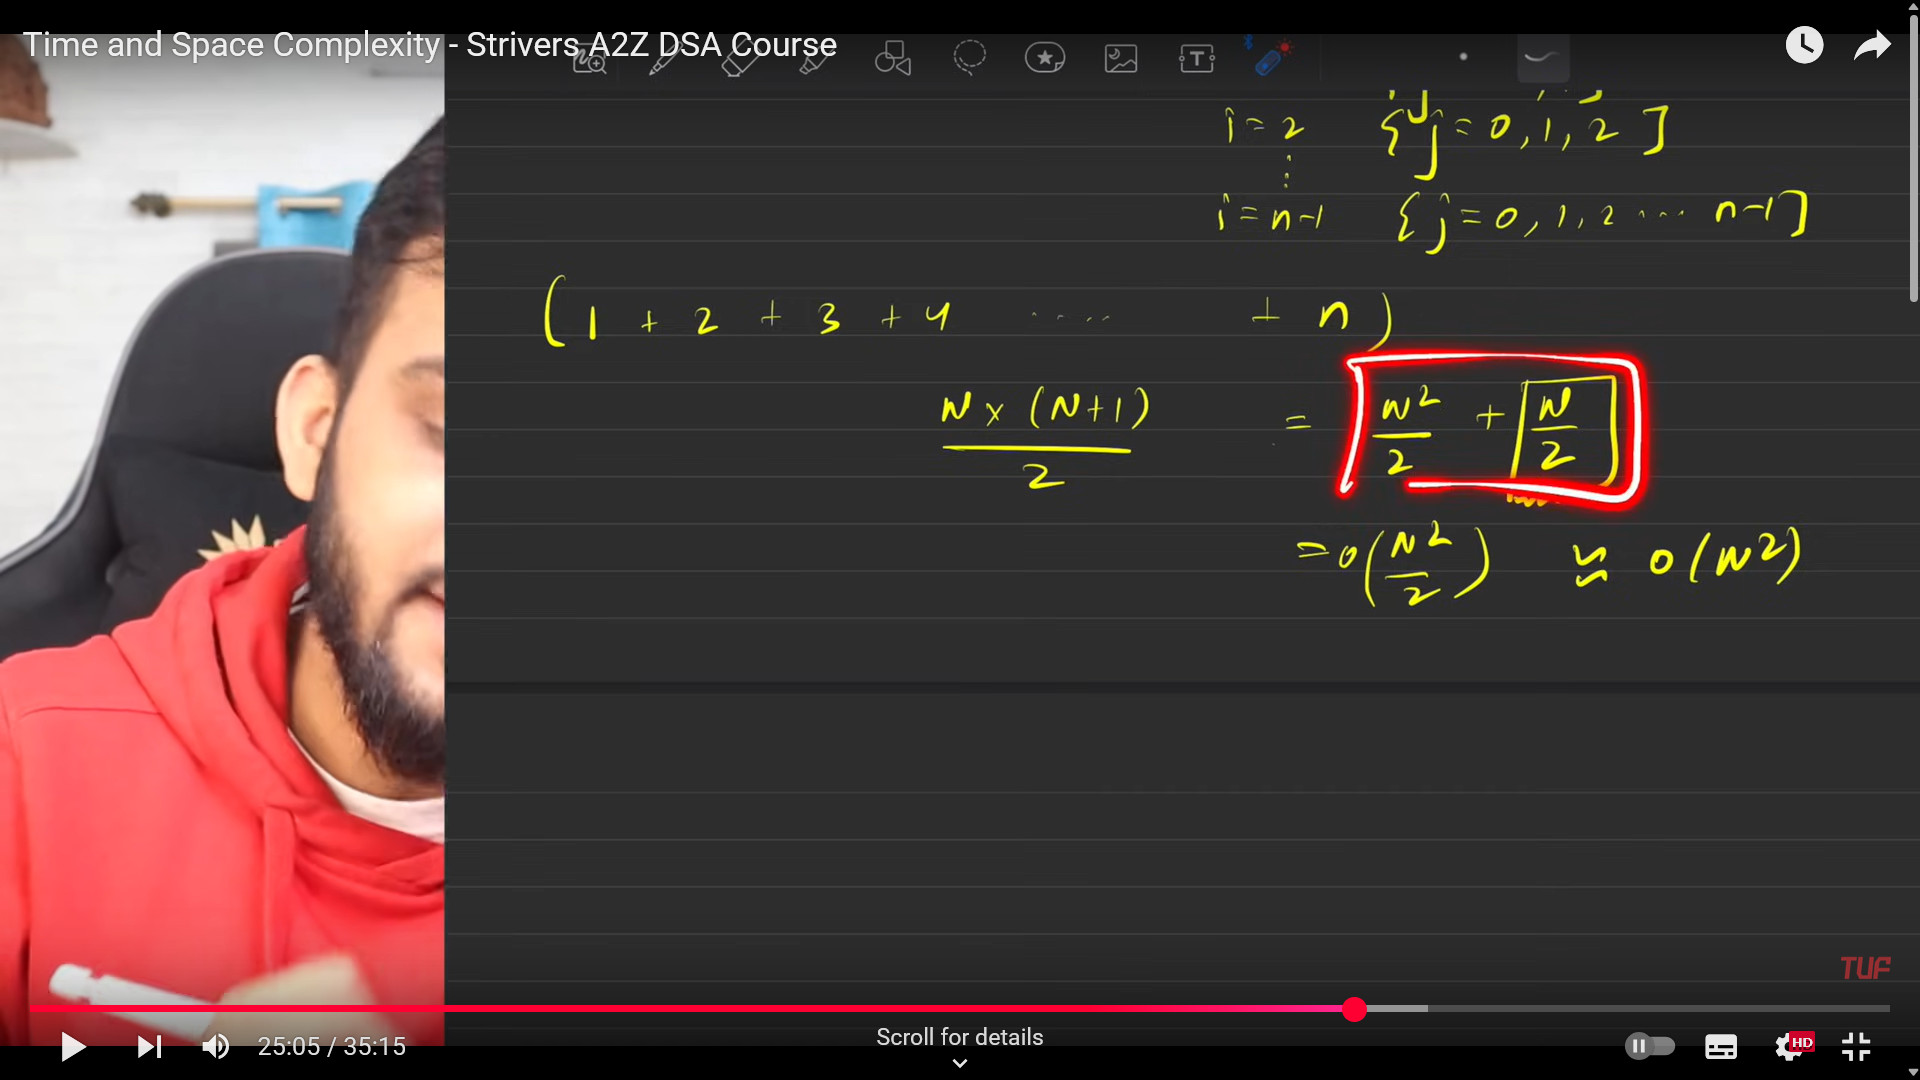 Time and Space Complexity - Strivers A2Z DSA Course
i = 2 { j = 0, 1, 2 ]
⋮
i = n-1 { j = 0, 1, 2 .... n-1 ]
( 1 + 2 + 3 + 4 ..... + n )
N x (N+1) / 2 = N²/2 + N/2
= O(N²/2) ≈ O(N²)
TUF
25:05 / 35:15
Scroll for details
HD